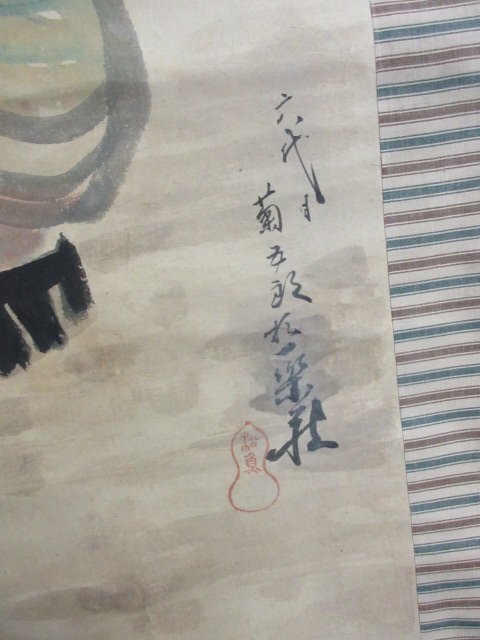 六代目
菊五郎於一楽荘